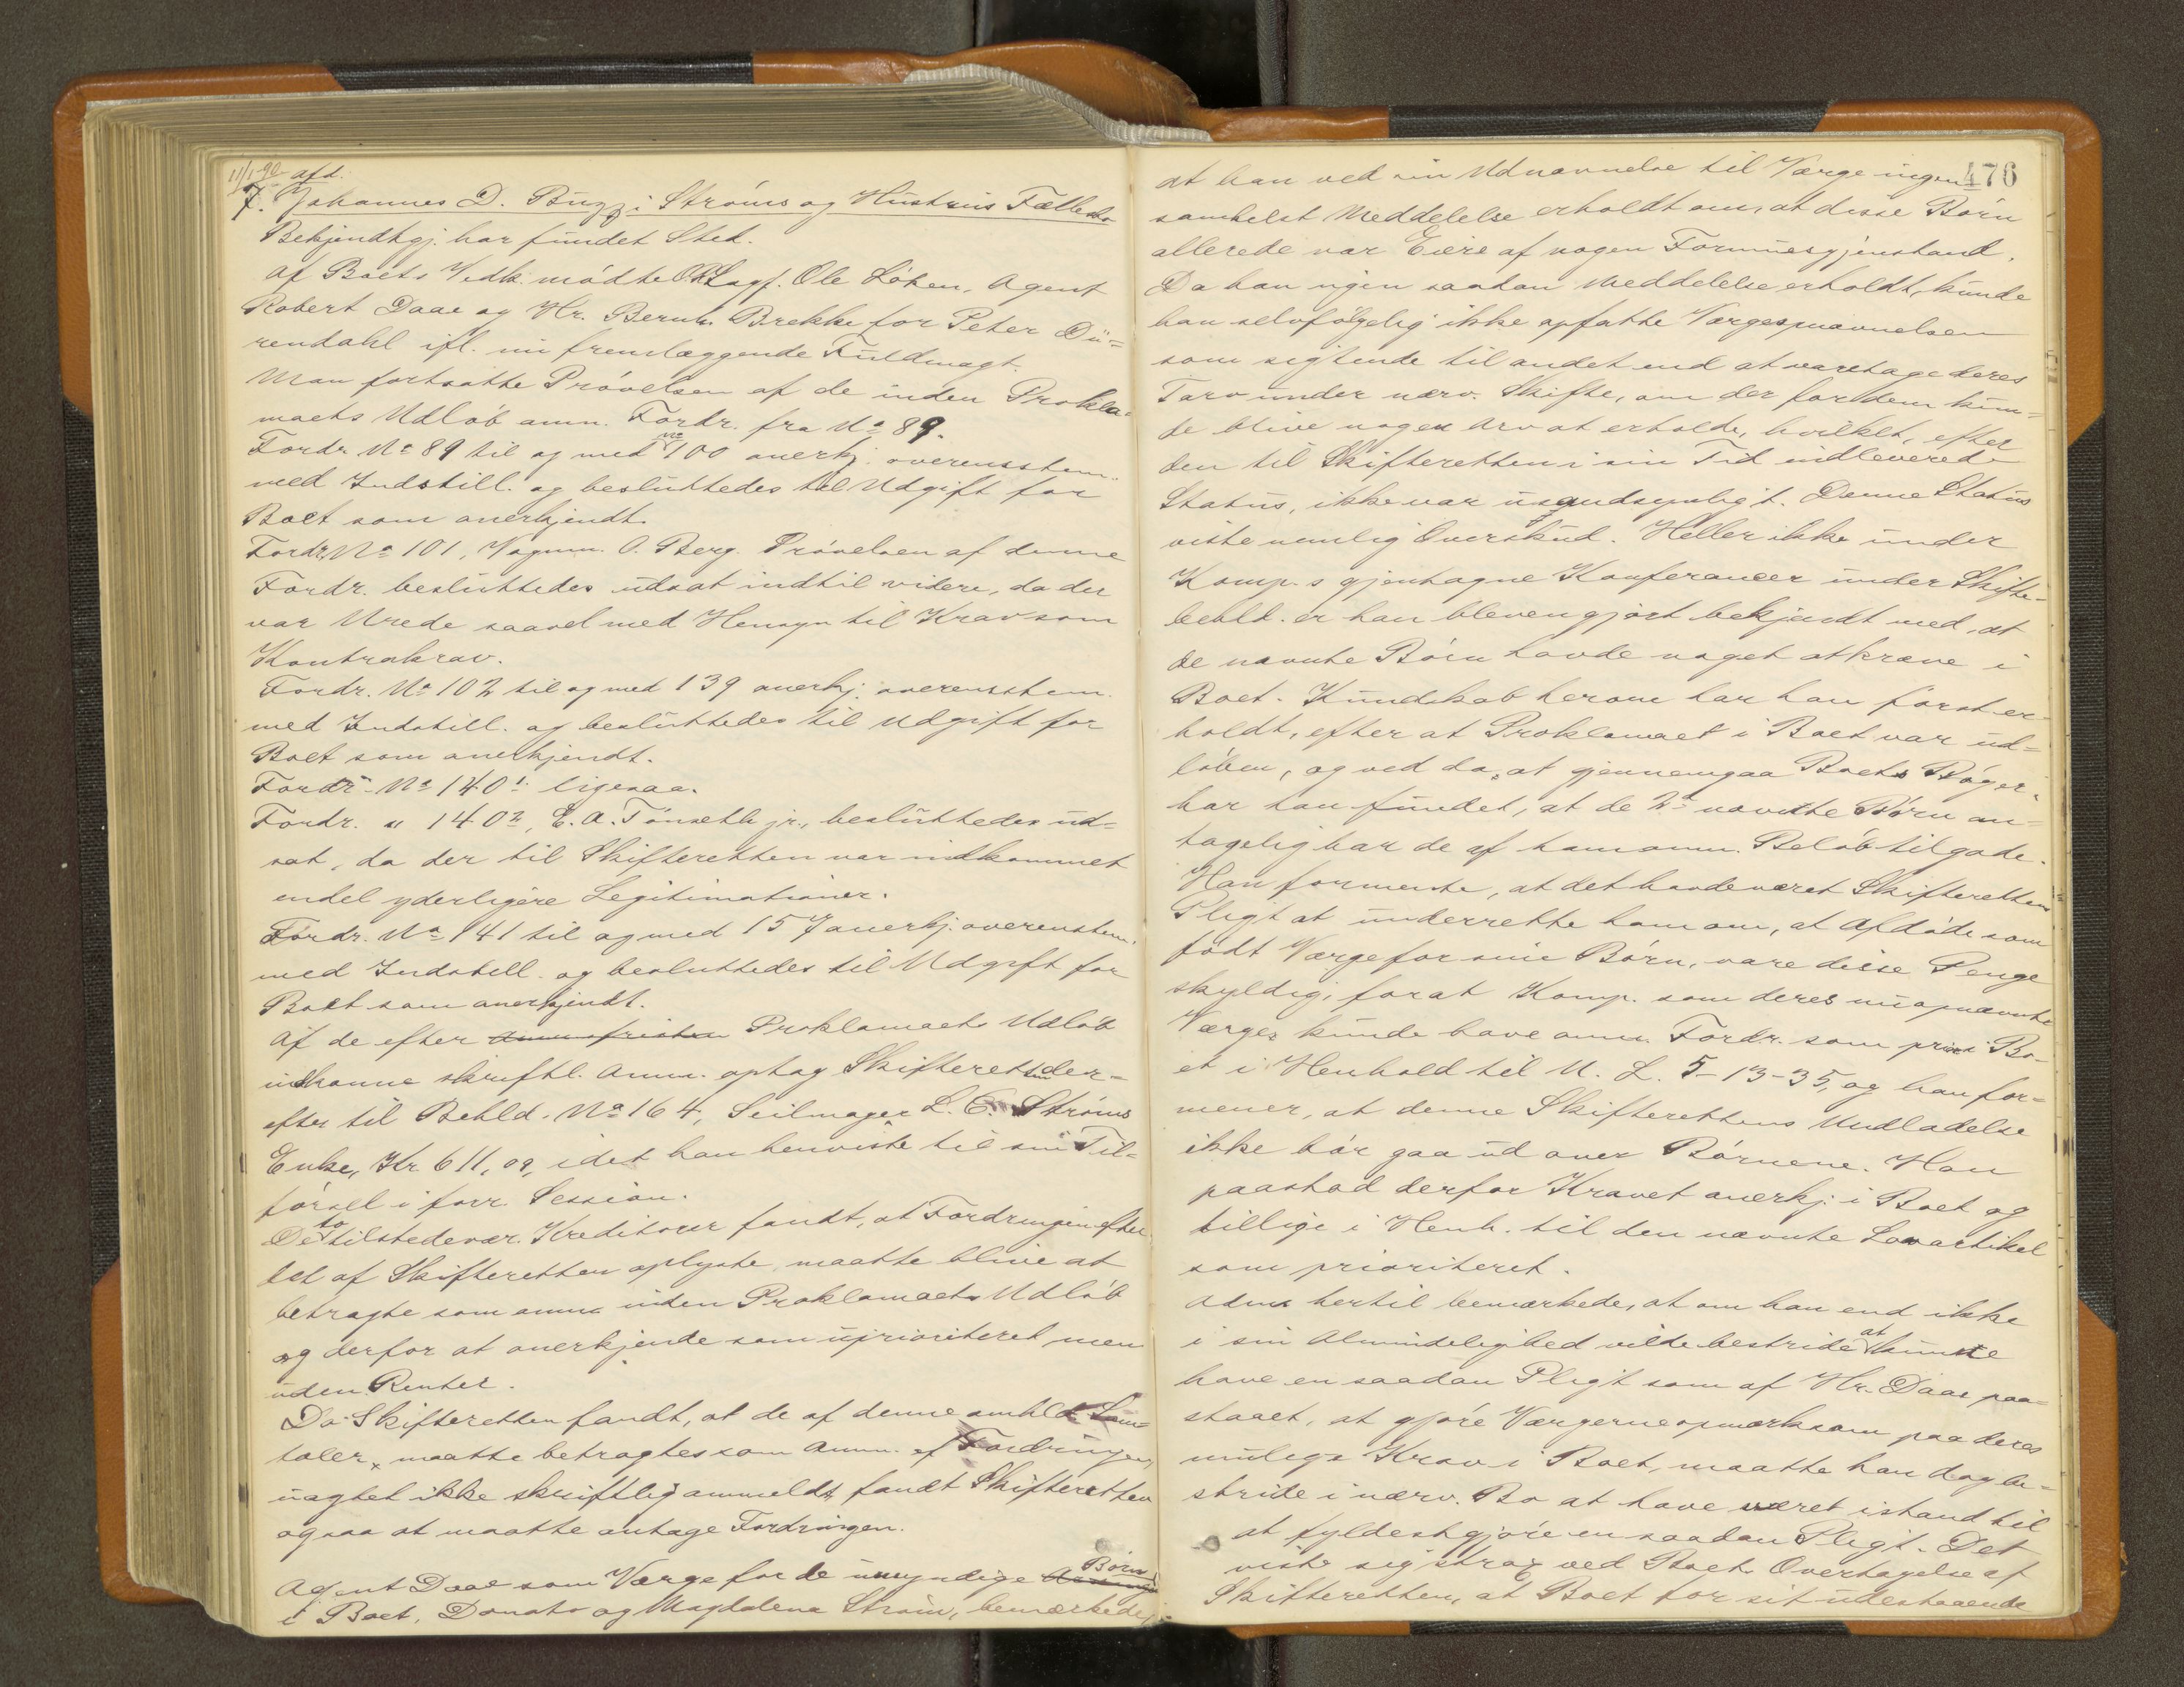 11/1-90 afd.
7. Johannes D. Buggi Ströms og Hustrus Fællesbo
Bekjendtgj. har fundet Sted.
Af Boets Vedk. mødte O.R.Sagf. Ole Løken, Agent
Robert Daae og Hr. Bernh. Brekke for Peter Dü-
rendahl ifl. nu fremlæggende Fuldmagt.
Man fortsatte Prøvelsen af de inden Prokla-
maets Udløb anm. Fordr. fra No 89.
Fordr No 89 til og med No 100 anerkj. overensstem.
med Indstill. og besluttedes til Udgift for
Boet som anerkjendt.
Fordr. No 101, Vognm. O. Berg. Prøvelsen af denne
Fordr. besluttedes udsat indtil videre, da der
var Urede saavel med Hensyn til Krav som
Kontrakrav.
Fordr. No 102 til og med 139 anerkj. overensstem.
med Indstill. og besluttedes til Udgift for
Boet som anerkjendt.
Fordr. No 140 1 ligesaa.
Fordr. " 140 2, E. A. Tønseth jr., besluttedes ud-
sat, da der til Skifteretten var indkommet
endel yderligere Legitimationer.
Fordr. No 141 til og med 157 anerkj. overenstem.
med Indstill. og besluttedes til Udgift for
Boet som anerkjendt.
Af de efter Proklamaets Udløb
indkomne skriftl. Anm. optog Skifteretten der-
efter til Behld. No 164, Seilmager L. C. Ströms
Enke, Kr 611,09, idet han henviste til sin Til-
førsel i forr. Session.
De to tilstedevær. Kreditorer fandt, at Fordringen efter
det af Skifteretten oplyste, maatte blive at
betragte som anm. inden Proklamaets Udløb
og derfor at anerkjende som uprioriteret men
uden Renter.
Da Skifteretten fandt, at de af denne omhldte Sam-
taler, maatte betragtes som Anm. af Fordringen,
uagtet ikke skriftlig anmeldt, fandt Skifteretten
ogsaa at maatte antage Fordringen.
Agent Daae som Værge for de umyndige Børn
i Boet, Donato og Magdalena Ström, bemærkede,
476
at han ved sin Udnævnelse til Værge ingen
somhelst Meddelelse erholdt om, at disse Børn
allerede var Eiere af nogen Formuesgjenstand.
Da han ingen saadan Meddelelse erholdt, kunde
han selvfølgelig ikke opfatte Værgeopnævnelsen
som sigtende til andet end at varetage deres
Tarv under nærv. Skifte, om der for dem kun-
de blive nogen Arv at erholde, hvilket, efter
den til Skifteretten i sin Tid indleverede
Status, ikke var usandsynligt. Denne Status
viste nemlig Overskud. Heller ikke under
Komp.s gjentagne Konferancer under Skifte-
behld. er han bleven gjort bekjendt med, at
de nævnte Børn havde noget at kræve i
Boet. Kundskab herom har han først er-
holdt, efter at Proklamaet i Boet var ud-
løben, og ved da, at gjennemgaa Boets Bøger,
har han fundet, at de 2de nævnte Børn an-
tagelig har de af ham anm. Beløb tilgode.
Han formente, at det havde været Skifterettens
Pligt at underrette ham om, at Afdøde som
født Værge for sine Børn, vare disse Penge
skyldig, forat Komp. som deres nu opnævnte
Værge kunde have anm. Fordr. som prior. i Bo-
et i Henhold til N. L. 5-13-35, og han for-
mener, at denne Skifterettens Undladelse
ikke bør gaa ud over Børnene. Han
paastod derfor Kravet anerkj. i Boet og
tillige i Henh. til den nævnte Lovartikel
som prioriteret.
Adms hertil bemærkede, at om han end ikke
i sin Almindelighed vilde bestride at kunne
have en saadan Pligt som af Hr. Daae paa-
staaet, at gjøre Værgerne opmærksom paa deres
mulige Krav i Boet, maatte han dog be-
stride i nærv. Bo at have været istand til
at fyldestgjøre en saadan Pligt. Det
viste sig strax ved Boets Overtagelse af
Skifteretten, at Boet for sit udestaaende